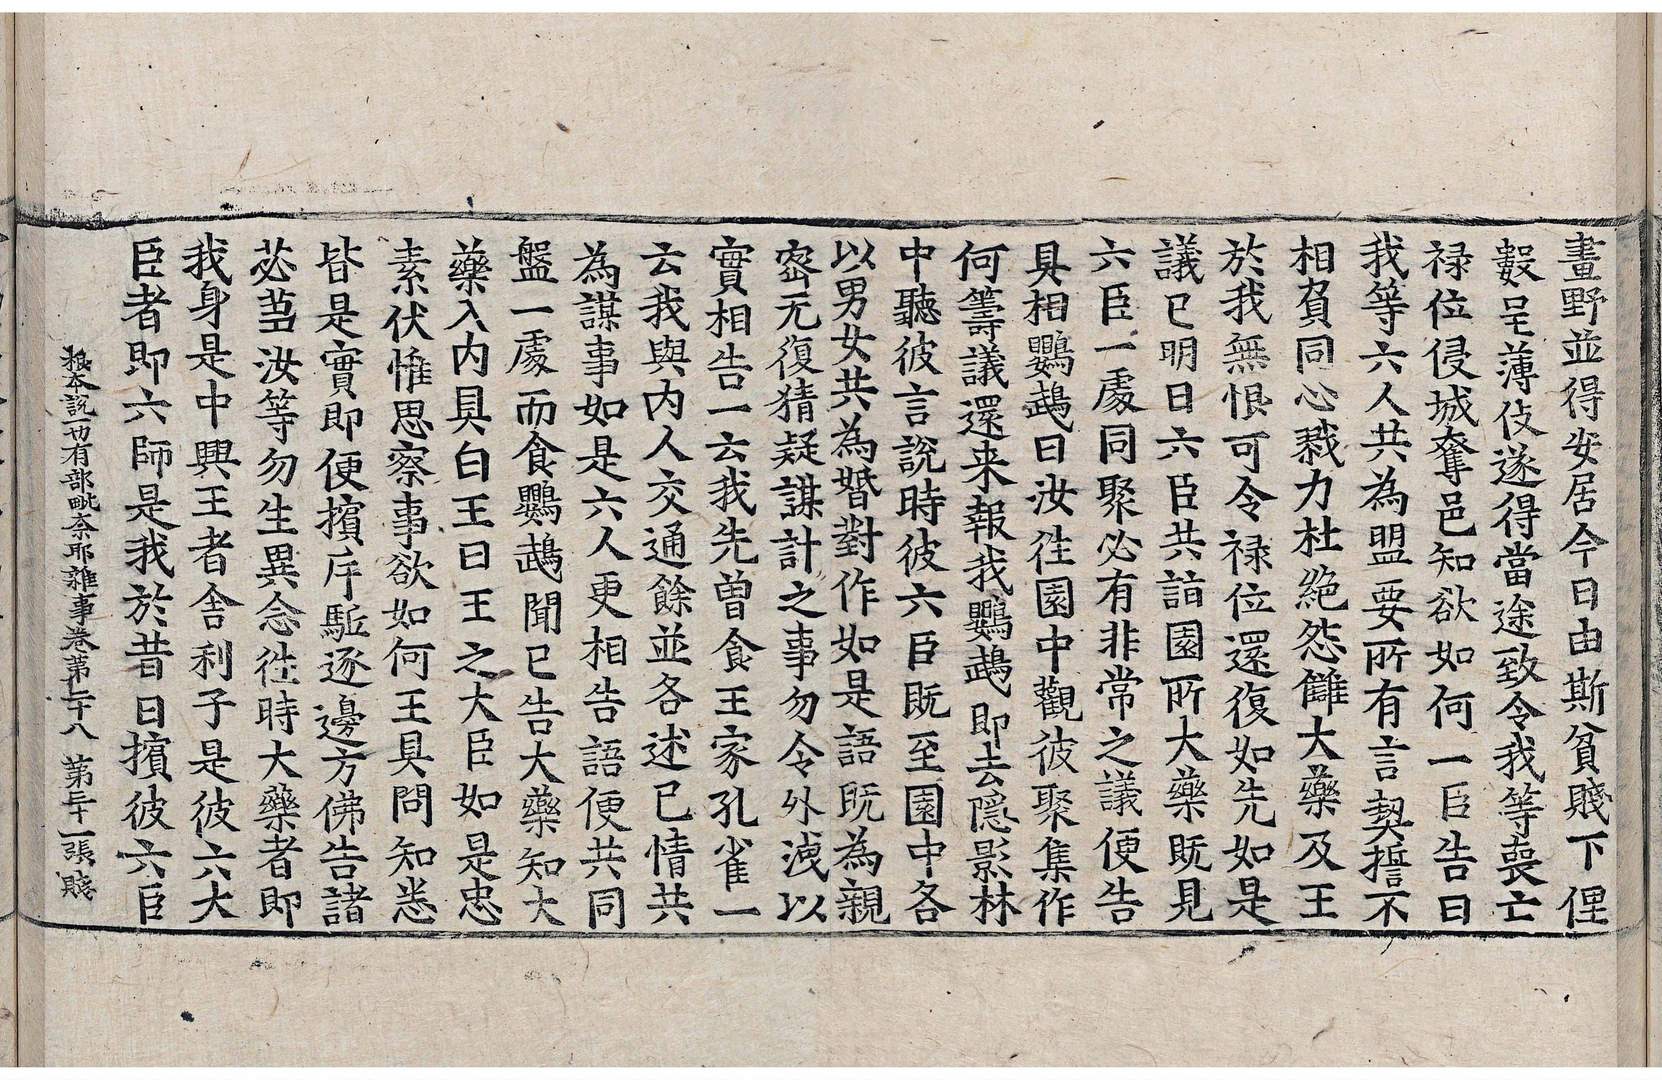 畫野並得安居今日由斯貧賤下俚
數呈薄伎遂得當途致令我等喪亡
禄位侵城奪邑知欲如何一臣告曰
我等六人共為盟要所有言契誓不
相負同心戮力杜絶怨讎大藥及王
於我無惧可令禄位還復如先如是
議已明日六臣共詣園所大藥既見
六臣一處同聚必有非常之議便告
具相鸚鵡曰汝徃園中觀彼聚集作
何籌議還来報我鸚鵡即去隱影林
中聽彼言說時彼六臣既至園中各
以男女共為婚對作如是語既為親
密无復猜疑謀計之事勿令外洩以
實相告一云我先曾食王家孔雀一
云我與内人交通餘並各述已情共
為謀事如是六人更相告語便共同
盤一處而食鸚鵡聞已告大藥知大
藥入内具白王曰王之大臣如是忠
素伏惟思察事欲如何王具問知悉
皆是實即便擯斥駈逐邊方佛告諸
苾芻汝等勿生異念徃時大藥者即
我身是中興王者舍利子是彼六大
臣者即六師是我於昔日擯彼六臣
根本說一切有部毗奈耶雜事卷第二十八　第二十一張賤